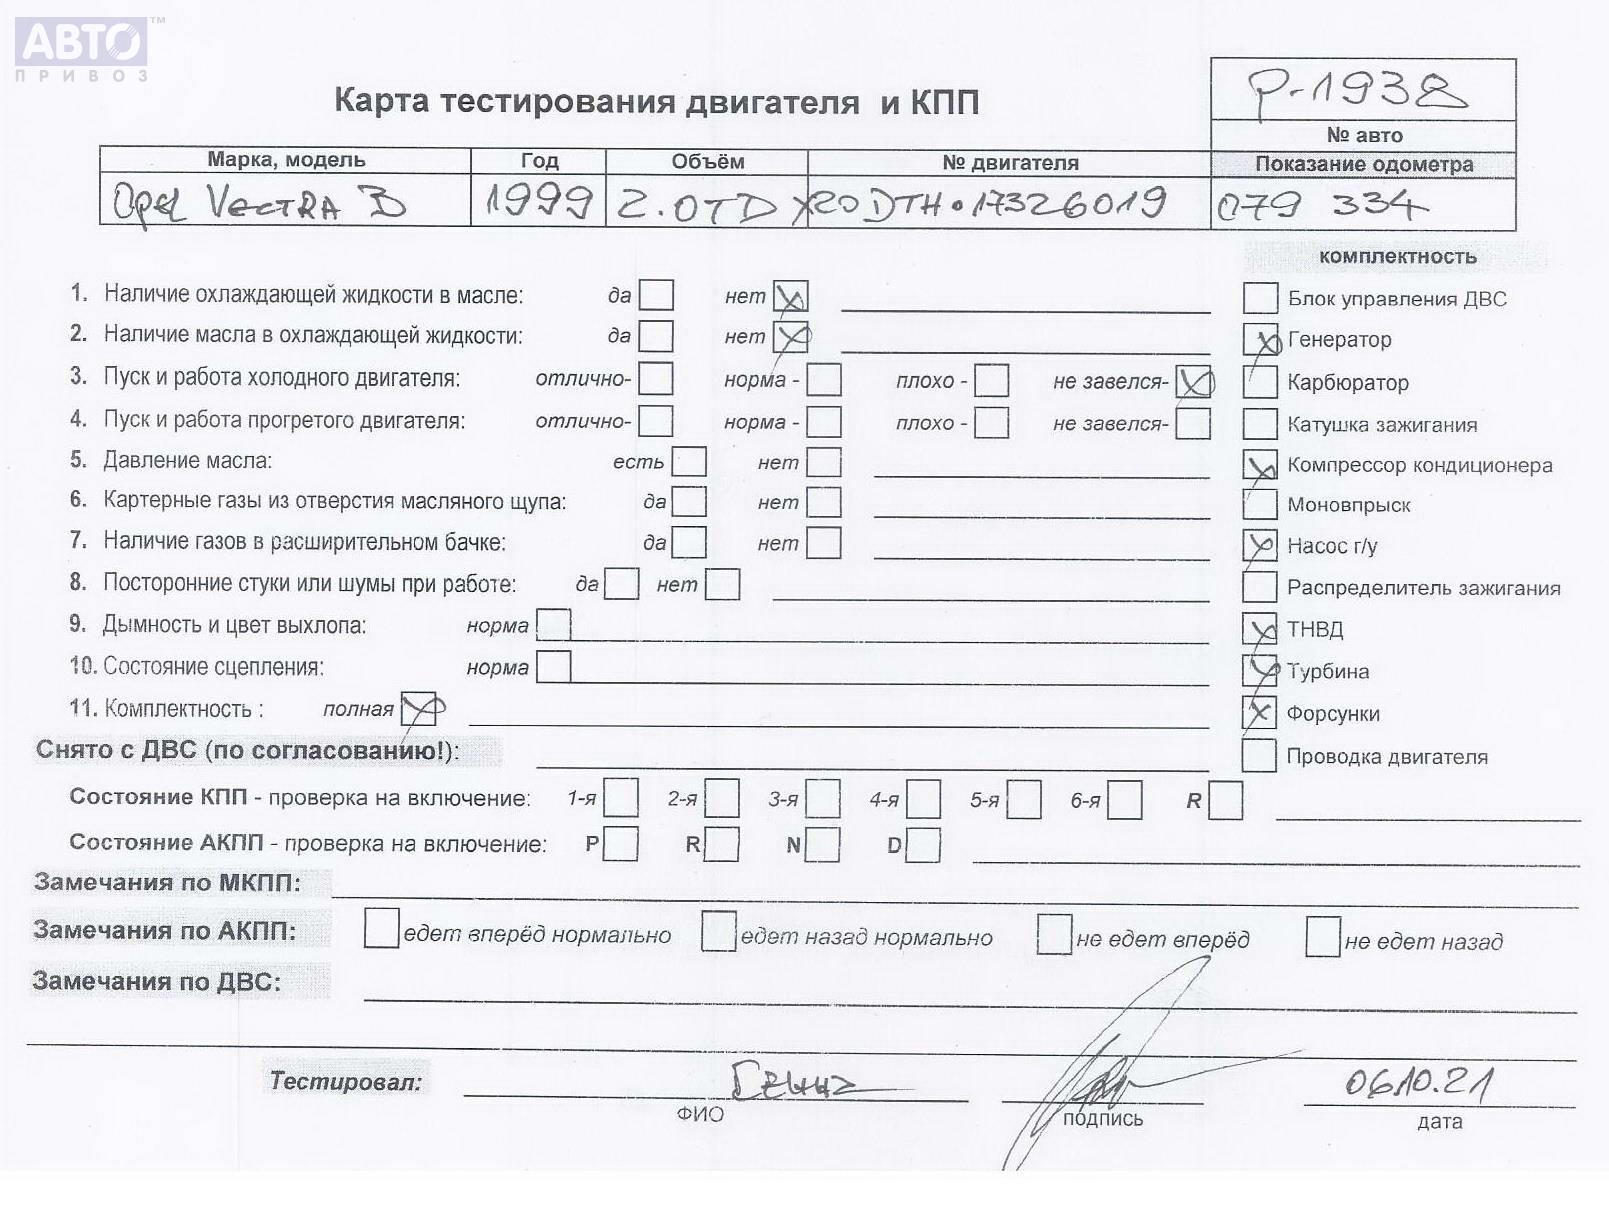 АВТО™
ПРИВОЗ
Карта тестирования двигателя и КПП
P-1938
№ авто
Марка, модель Год Объём № двигателя Показание одометра
Opel Vectra B 1999 2.0TD X20DTH•17326019 079 334
комплектность
1. Наличие охлаждающей жидкости в масле: да нет
Блок управления ДВС
2. Наличие масла в охлаждающей жидкости: да нет
Генератор
3. Пуск и работа холодного двигателя: отлично- норма - плохо - не завелся-
Карбюратор
4. Пуск и работа прогретого двигателя: отлично- норма - плохо - не завелся-
Катушка зажигания
5. Давление масла: есть нет
Компрессор кондиционера
6. Картерные газы из отверстия масляного щупа: да нет
Моновпрыск
7. Наличие газов в расширительном бачке: да нет
Насос г/у
8. Посторонние стуки или шумы при работе: да нет
Распределитель зажигания
9. Дымность и цвет выхлопа: норма
ТНВД
10. Состояние сцепления: норма
Турбина
11. Комплектность : полная
Форсунки
Снято с ДВС (по согласованию!):
Проводка двигателя
Состояние КПП - проверка на включение: 1-я 2-я 3-я 4-я 5-я 6-я R
Состояние АКПП - проверка на включение: P R N D
Замечания по МКПП:
Замечания по АКПП: едет вперёд нормально едет назад нормально не едет вперёд не едет назад
Замечания по ДВС:
Тестировал: 06.10.21
ФИО подпись дата